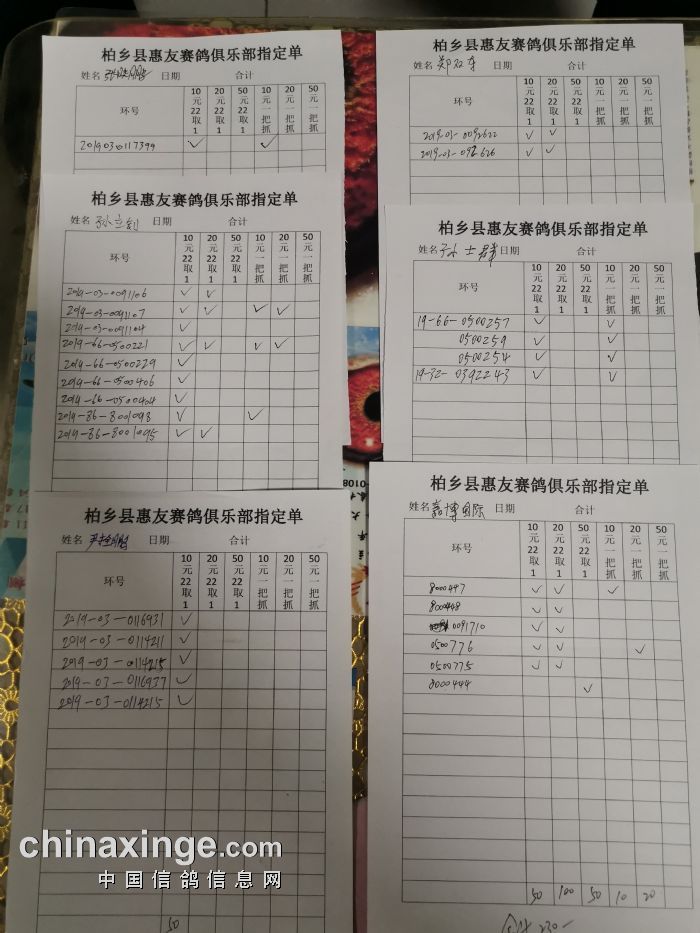 柏乡县惠友赛鸽俱乐部指定单
姓名 日期 合计
环号 10元22取1 20元22取1 50元22取1 10元一把抓 20元一把抓 50元一把抓
2019030117399 ✓ ✓
柏乡县惠友赛鸽俱乐部指定单
姓名 郑双存 日期 合计
环号 10元22取1 20元22取1 50元22取1 10元一把抓 20元一把抓 50元一把抓
2019-03-0092622 ✓ ✓
2019-03-092626 ✓ ✓
柏乡县惠友赛鸽俱乐部指定单
姓名 孙立钊 日期 合计
环号 10元22取1 20元22取1 50元22取1 10元一把抓 20元一把抓 50元一把抓
2019-03-0091106 ✓ ✓
2019-03-0091107 ✓ ✓ ✓ ✓
2019-03-0091104 ✓
2019-66-0500221 ✓ ✓ ✓ ✓
2019-66-0500229 ✓
2019-66-0500406 ✓
2019-66-0500404 ✓
2019-86-8001098 ✓ ✓
2019-86-8001095 ✓ ✓
柏乡县惠友赛鸽俱乐部指定单
姓名 孙士群 日期 合计
环号 10元22取1 20元22取1 50元22取1 10元一把抓 20元一把抓 50元一把抓
19-66-0500257 ✓ ✓
0500259 ✓ ✓
0500254 ✓ ✓
19-32-0392243 ✓ ✓
柏乡县惠友赛鸽俱乐部指定单
姓名 日期 合计
环号 10元22取1 20元22取1 50元22取1 10元一把抓 20元一把抓 50元一把抓
2019-03-0116931 ✓
2019-03-0114211 ✓
2019-03-0114215 ✓
2019-03-0116937 ✓
2019-03-0114215 ✓
50
柏乡县惠友赛鸽俱乐部指定单
姓名 嘉博国际 日期 合计
环号 10元22取1 20元22取1 50元22取1 10元一把抓 20元一把抓 50元一把抓
8000447 ✓ ✓ ✓
8000448 ✓ ✓
0091710 ✓ ✓
0500776 ✓ ✓ ✓
0500775 ✓ ✓
8000444 ✓
50 100 50 10 20
合计 230-
chinaxinge.com
中国信鸽信息网